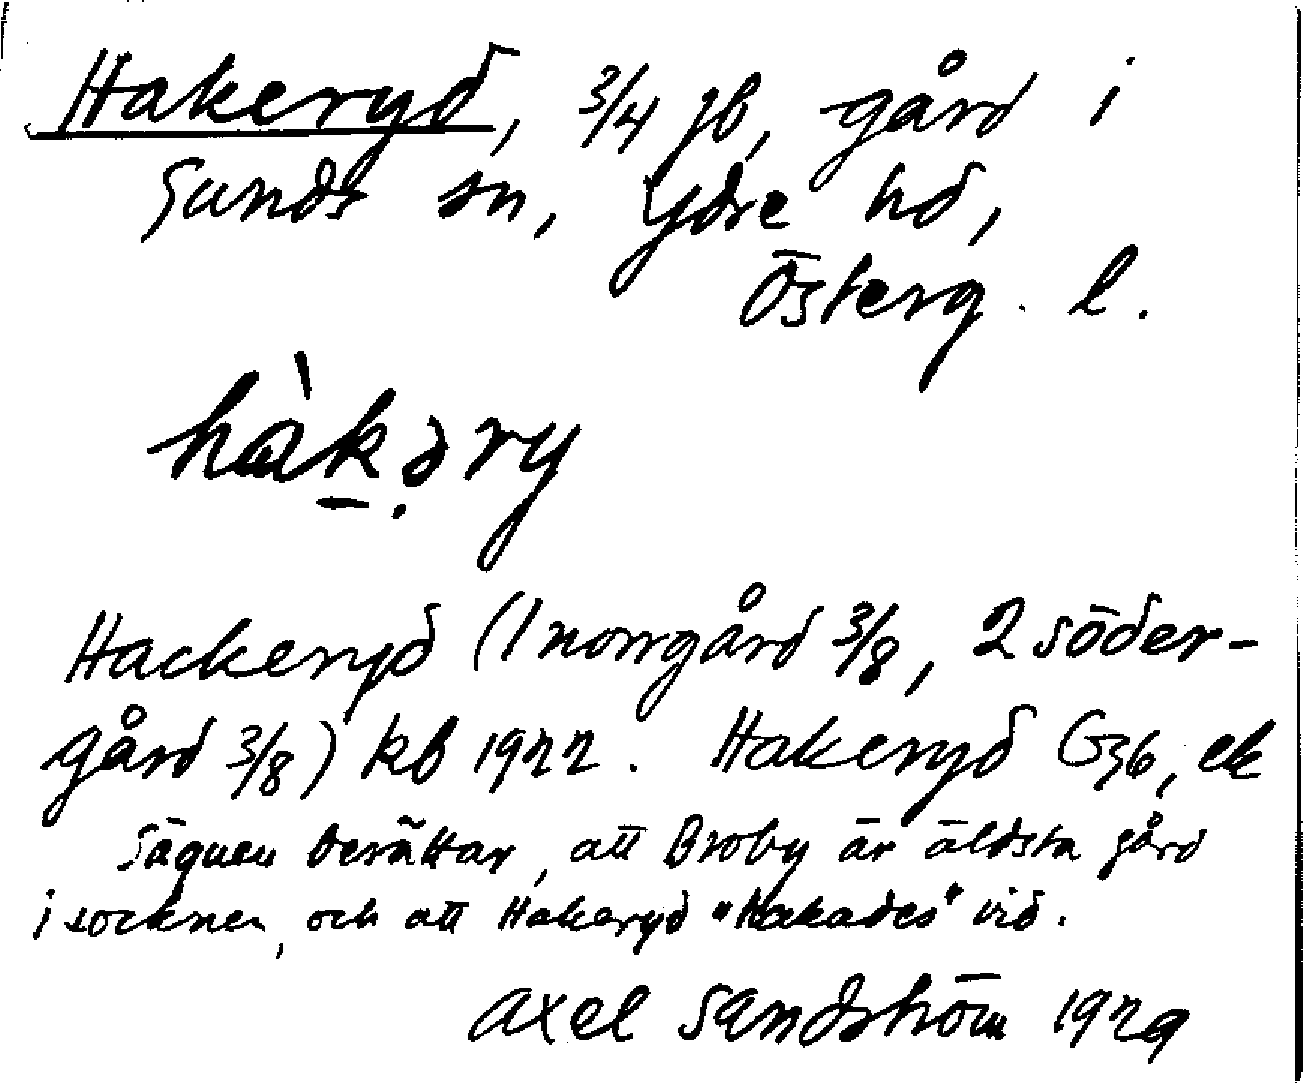 Hakeryd, 3/4 jb, gård i
Sunds sn, Ydre hd,
Österg. l.
hàk̠ə̣ry
Hackeryd (1 norrgård 3/8, 2 söder-
gård 3/8) kb 1922. Hakeryd G36, ek
Sägnen berättar, att Broby är äldsta gård
i socknen, och att Hakeryd "hakades" vid.
Axel Sandström 1929